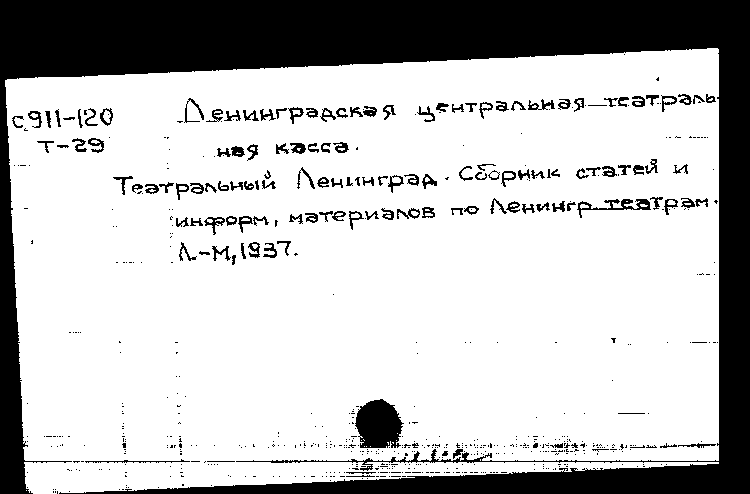 с911-120 Ленинградская центральная театраль-
Т-29 ная касса.
Театральный Ленинград. Сборник статей и
информ, материалов по Ленингр. театрам.
Л.-М, 1937.